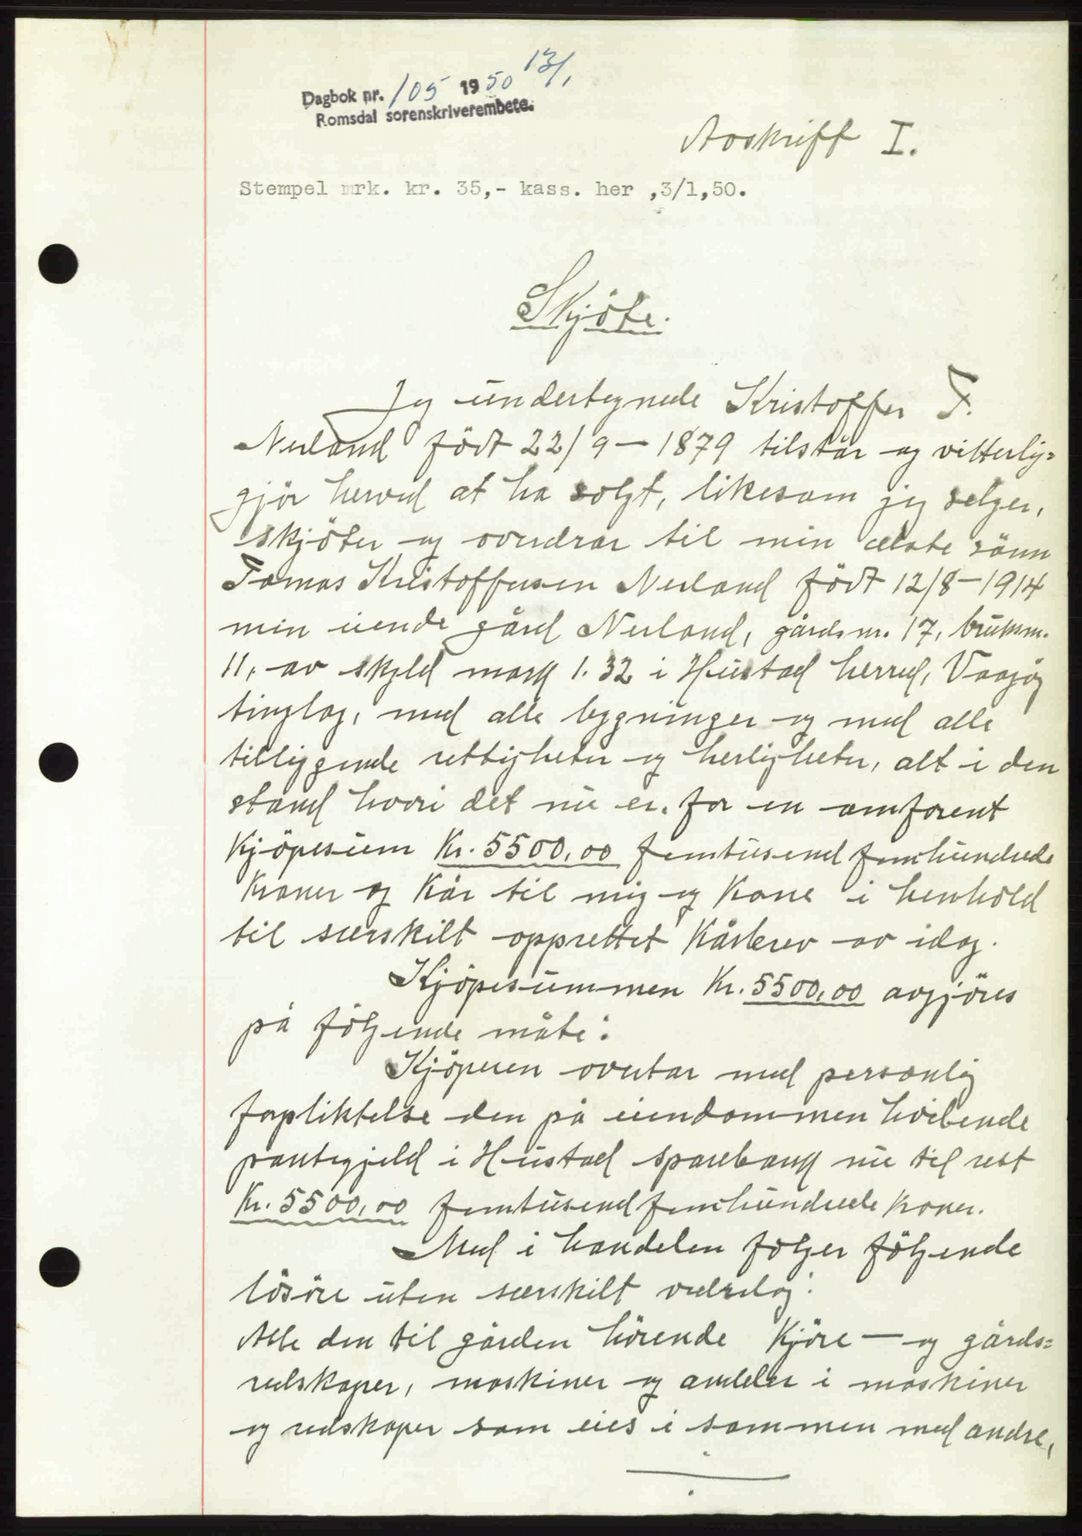 Dagbok nr. 105 1950 13/1
Romsdal sorenskriverembete.
Avskrift I.
Stempel mrk. kr. 35,- kass. her ,3/1,50.
Skjöte.
Jeg undertegnede Kristoffer F.
Nerland födt 22/9 - 1879 tilstår og vitterlig=
gjör herved at ha solgt, likesom jeg selger,
skjöter og overdrar til min ælste sönn
Tomas Kristoffersen Nerland födt 12/8 - 1914
min eiende gård Nerland, gårdsnr. 17, bruksnr.
11, av skyld mark 1.32 i Hustad herred, Vaagöy
tinglag, med alle bygninger og med alle
tilliggende rettigheter og herligheter, alt i den
stand hvori det nu er, for en omforent
Kjöpesum Kr. 5500,00 femtusendfemhundrede
Kroner og Kår til mig og Kone i henhold
til særskilt opprettet Kårbrev av idag.
Kjöpesummen Kr. 5500,00 avgjöres
på fölgende måte:
Kjöperen overtar med personlig
forpliktelse den på eiendommen hvilende
pantegjeld i Hustad sparebank nu til rest
Kr. 5500,00 femtusendfemhundrede Kroner.
Med i handelen fölger fölgende
lösöre uten særskilt vederlag:
Alle den til gården hörende Kjöre - og gårds=
redskaper, maskiner og andeler i maskiner
og redskaper som eies i sammen med andre,